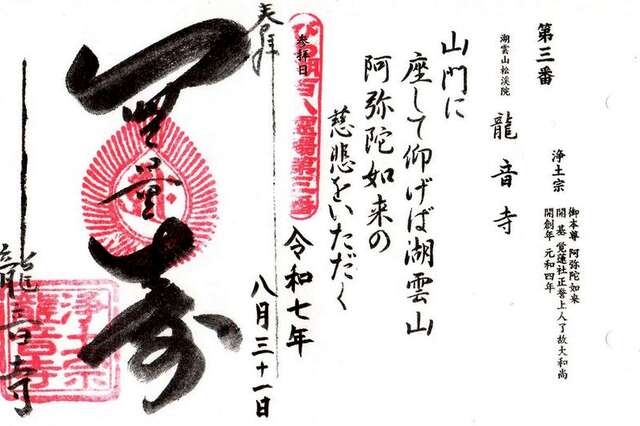 第三番
湖雲山松渓院 龍音寺
浄土宗
御本尊 阿弥陀如来
開基 覚蓮社正誉上人了故大和尚
開創年 元和四年
山門に
座して仰げば湖雲山
阿弥陀如来の
慈悲をいただく
参拝日
令和七年
八月三十一日
びわ湖百八霊場第三番
奉拝
無量寿
龍音寺
浄土宗
龍音寺